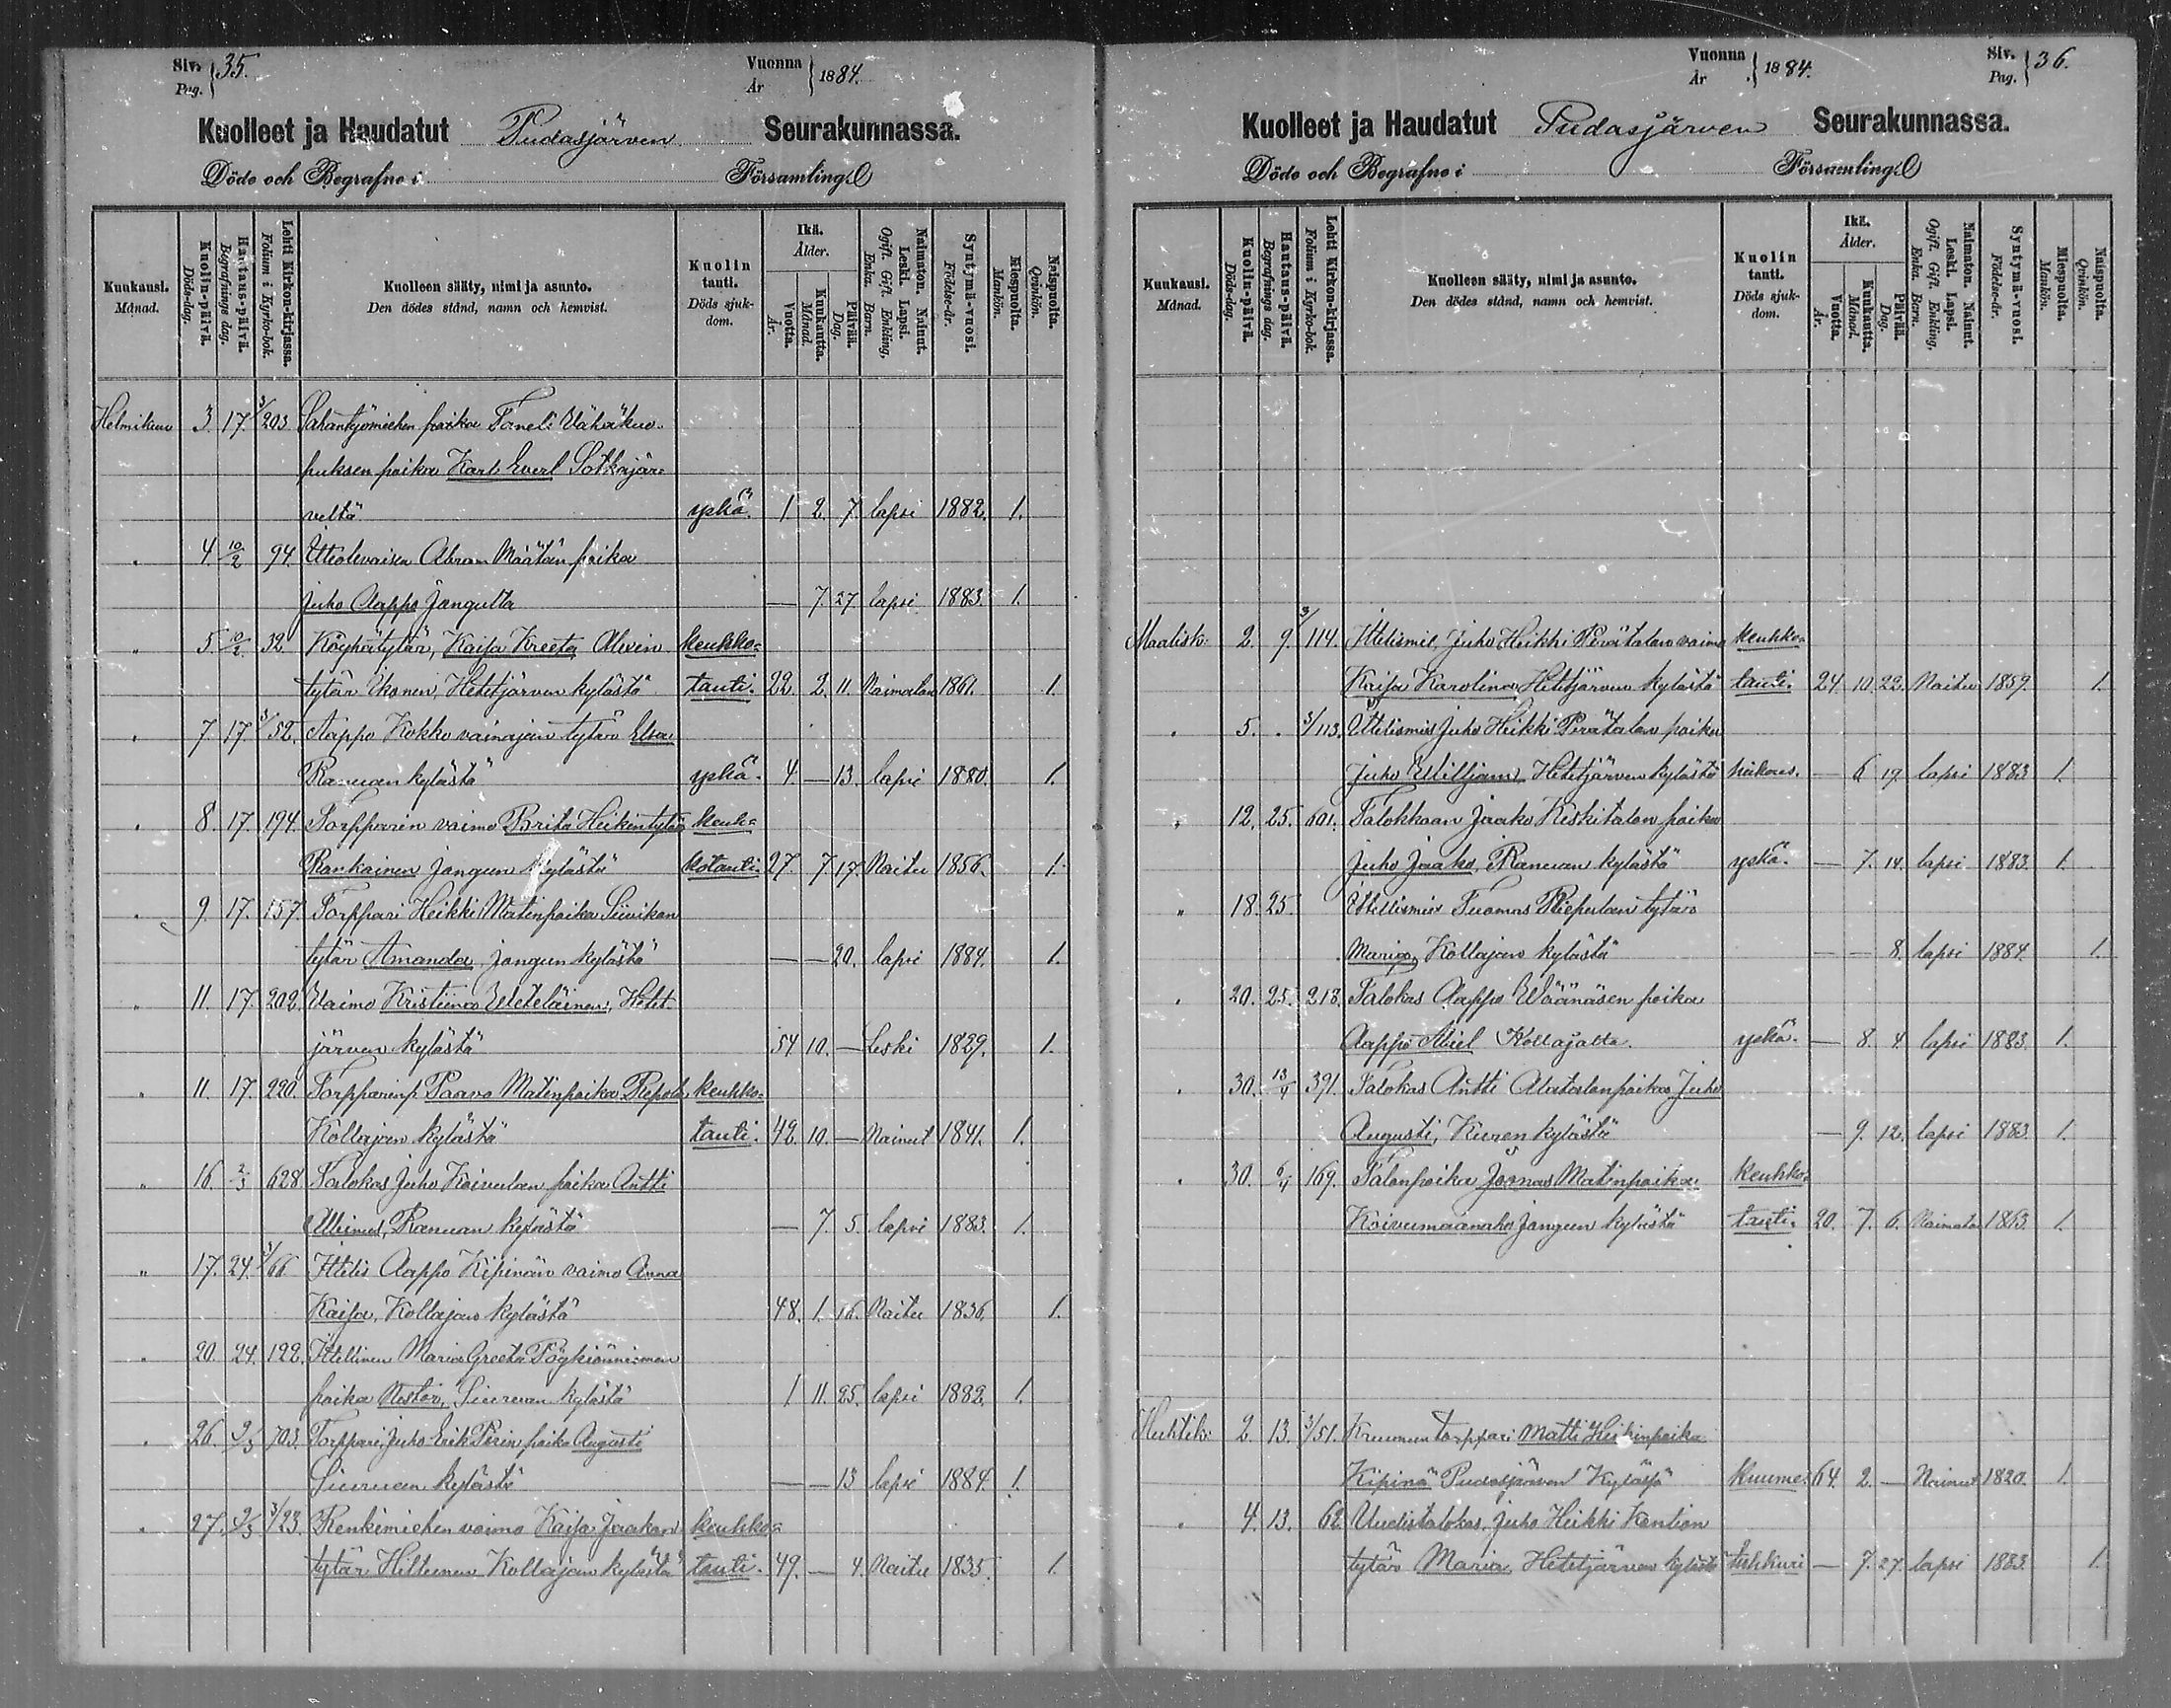 Siv. Pag. 35. Vuonna År 1884.
Kuolleet ja Haudatut Pudasjärven Seurakunnassa.
Döde och Begrafne i Församling.
Kuukausi. Månad. Kuolin-päivä. Döds-dag. Hautaus-päivä. Begrafnings dag. Lehti Kirkon-kirjassa. Folium i Kyrko-bok. Kuolleen sääty, nimi ja asunto. Den dödes stånd, namn och hemvist. Kuolin tauti. Döds sjukdom. Ikä. Ålder. Vuotta. År. Kuukautta. Månad. Päivää. Dag. Naimaton. Nainut. Leski. Lapsi. Ogift. Gift. Enkling, Enka. Barn. Syntymä-vuosi. Födelse-år. Miespuolta. Mankön. Naispuolta. Qvinkön.
Helmikuu 3. 17. 3/203 Sahantyömiehen poika Taneli Vähäkuo-
puksen poika Karl Everl Sotkajär-
veltä yskä. 1 2. 7. lapsi 1882. 1.
" 4. 10/2 94. Itteolevaisen Abram Määtän poika
Juho Aappo Jangulta — 7. 27 lapsi 1883. 1.
" 5. 10/2. 32 Köyhätytär, Kaisa Kreeta Alexin keuhko-
tytär Ikonen, Hetetjärven kylästä tauti. 22. 2. 11. Naimaton 1861. 1.
" 7. 17 3/52. Aappo Kokko vainajan tytär Elsa
Ranuan kylästä yskä. 4. — 13. lapsi 1880. 1.
" 8. 17. 194. Torpparin vaimo Brita Heikintytär keuh-
Rankainen Jangun kylästä kotauti. 27. 7. 17. Naitu 1856. 1.
" 9. 17. 157. Torppari Heikki Matinpoika Siivikon
tytär Amanda, Jangun kylästä — — 20. lapsi 1884. 1.
" 11. 17. 202. Vaimo Kristiina Veteläinen, Hetet-
järven kylästä 54 10. — Leski 1829. 1.
" 11. 17. 220. Torpparinp. Paavo Matinpoika Riepola keuhko-
Kollajan kylästä tauti. 42. 10. — Nainut 1841. 1.
" 16. 2/3 628. Talokas Juho Koivulan poika Antti
Ranuan kylästä — 7. 5. lapsi 1883. 1.
" 17. 24. 3/66 Ittelis Aappo Kipinän vaimo Anna
Kaisa, Kollajan kylästä 48. 1. 16. Naitu 1836. 1.
" 20. 24. 122. Ittellinen Maria Greeta
poika Nestor, Siuruan kylästä 1 11. 25. lapsi 1882. 1.
" 26. 2/3 703. Torppari, Juho Erik Perin poika Augusti
Siuruan kylästä — — 13 lapsi 1884. 1.
" 27. 2/3 3/23. Renkimiehen vaimo Kaisa Jaakon keuhko-
tytär Hiltunen Kollajan kylästä tauti. 49. — 4. Naitu 1835. 1.
Vuonna År 1884. Siv. Pag. 36.
Kuolleet ja Haudatut Pudasjärven Seurakunnassa.
Döde och Begrafne i Församling.
Kuukausi. Månad. Kuolin-päivä. Döds-dag. Hautaus-päivä. Begrafnings dag. Lehti Kirkon-kirjassa. Folium i Kyrko-bok. Kuolleen sääty, nimi ja asunto. Den dödes stånd, namn och hemvist. Kuolin tauti. Döds sjukdom. Ikä. Ålder. Vuotta. År. Kuukautta. Månad. Päivää. Dag. Naimaton. Nainut. Leski. Lapsi. Ogift. Gift. Enkling, Enka. Barn. Syntymä-vuosi. Födelse-år. Miespuolta. Mankön. Naispuolta. Qvinkön.
Maalisk: 2. 9. 3/114. Ittelismie, Juho Heikki Perätalon vaimo keuhko-
Kaisa Karolina, Hetetjärven kylästä tauti. 24. 10. 22. Naitu 1859. 1.
" 5. . 3/113. Ittelismies Juho Heikki Perätalon poika
Juho Villjam, Hetetjärven kylästä — 6 19. lapsi 1883 1.
" 12. 25. 601. Talokkaan Jaako Keskitalon poika
Juho Jaako, Ranuan kylästä yskä. — 7. 14. lapsi 1883. 1.
" 18. 25. Ittellismies Tuomas Riepulan tytär
Maria, Kollajan kylästä — — 8. lapsi 1884. 1.
" 20. 25. 218. Talokas Aappo Väänäsen poika
Aappo Abiel Kollajalta. yskä. — 8. 4. lapsi 1883. 1.
" 30. 13/4 391. Talokas Antti Alatalonpoika Juho
Augusti, Kuren kylästä — 9. 12. lapsi 1883. 1.
" 30. 6/4 169. Talonpoika Joonas Matinpoika keuhko-
Jangun kylästä tauti. 20. 7. 6. Naimaton 1863. 1.
Huhtik: 2. 13. 3/51. Kruunun torppari Matti Heikinpoika
Kipinä Pudasjärven Kylästä kuume. 64. 2. — Nainut 1820. 1.
" 4. 13. 62 Uudistalokas, Juho Heikki Kantion
tytär Maria, Hetetjärven kylästä tuhkuri — 7. 27. lapsi 1883. 1.